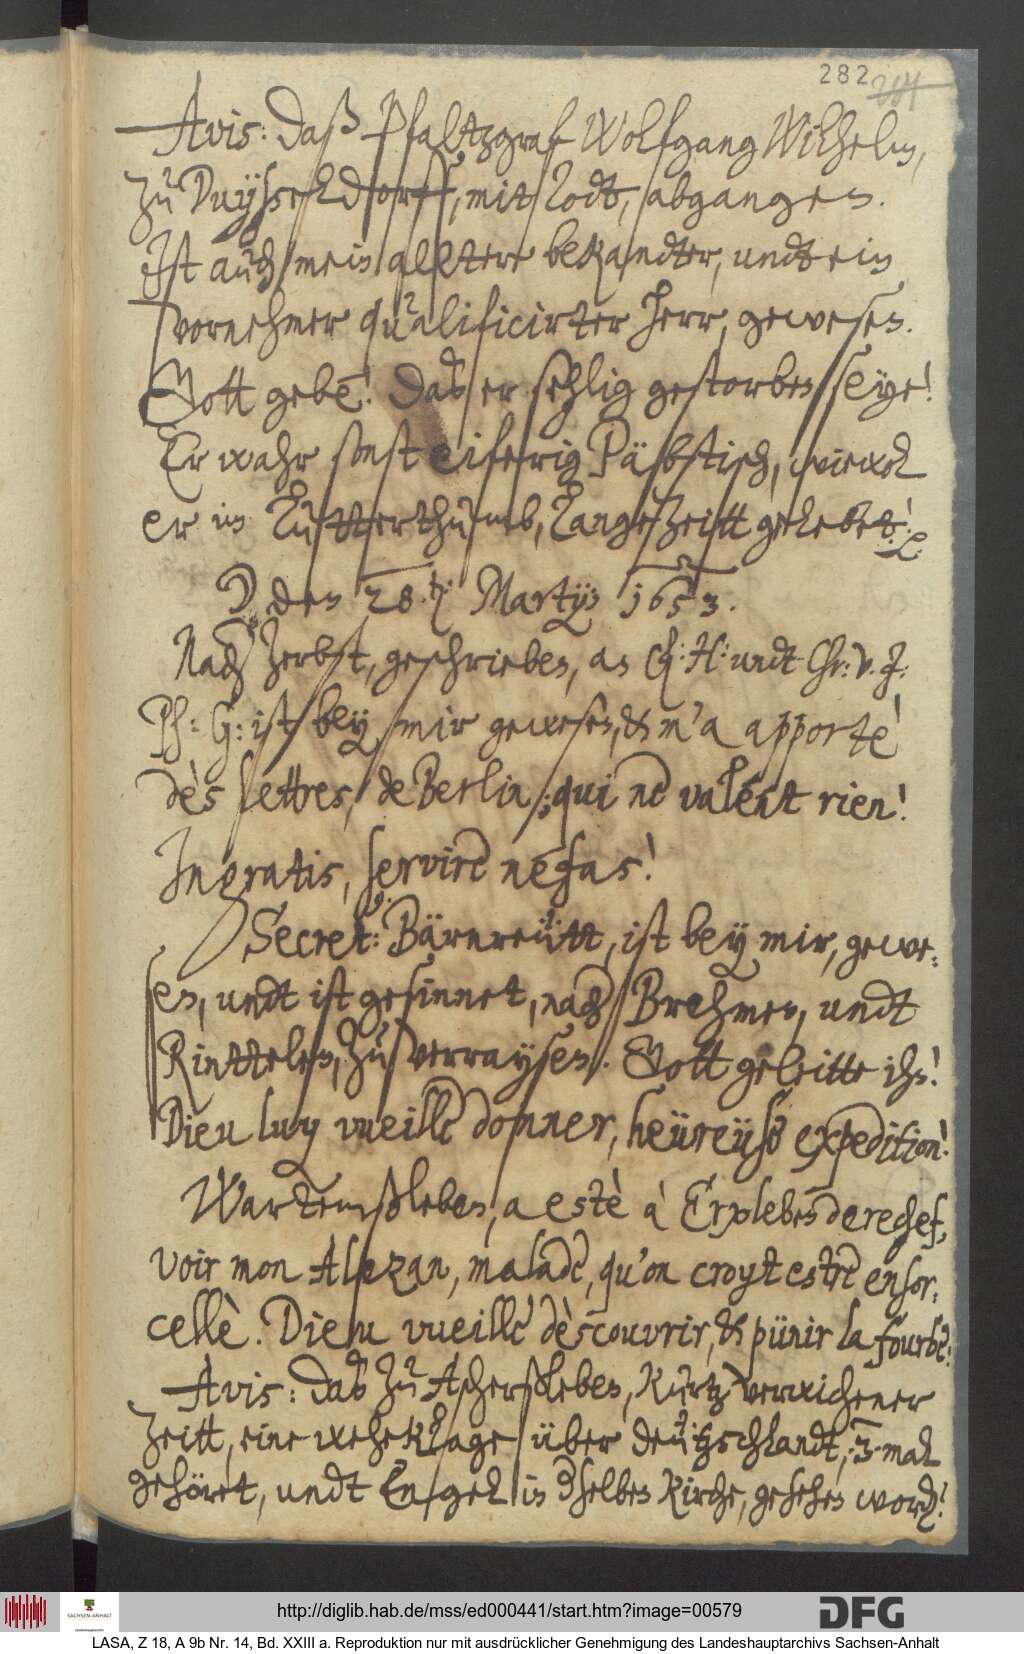 282
Avis: daß Pfaltzgraf Wolfgang Wilhelm,
zu Duÿßeldorff, mit Todt, abgangen.
Ist auch mein alltere bekandter, undt ein
vornehmer qualificirter Herr, gewesen.
Gott gebe! daß er sehlig gestorben seÿe!
Er wahr sonst eiferig Päbstisch, wiewol
er im Luttherthumb, lange zeitt gelebet.
den 28. Martij 1653.
Nach Zerbst, geschrieben, an C: H: undt Chr: v. J:
Ph: G: ist beÿ mir gewesen, & m'a apportè
dès lettres, de Berlin, qui ne valent rien!
Ingratis, servire nefas!
Secret: Bärnreütt, ist beÿ mir, gewe¬
en, undt ist gesinnet, nach Brehmen, undt
Rinttelen, zu verraÿsen. Gott geleitte ihn!
Dieu luy vueille donner, heüreüse expedition!
Wartemßleben, a estè à Erxleben derechef,
voir mon Alezan, malade, qu'on croyt estre ensor¬
cellè. Dieu vueille dèscouvrir, & pünir la fourbe!
Avis: daß zu Aschersleben, kurtz verwichener
zeitt, eine weheklage über deützschlandt, 3. mal
gehöret, undt Engel in dselben Kirche, gesehen word.
http://diglib.hab.de/mss/ed000441/start.htm?image=00579
DFG
SACHSEN-ANHALT
LASA, Z 18, A 9b Nr. 14, Bd. XXIII a. Reproduktion nur mit ausdrücklicher Genehmigung des Landeshauptarchivs Sachsen-Anhalt